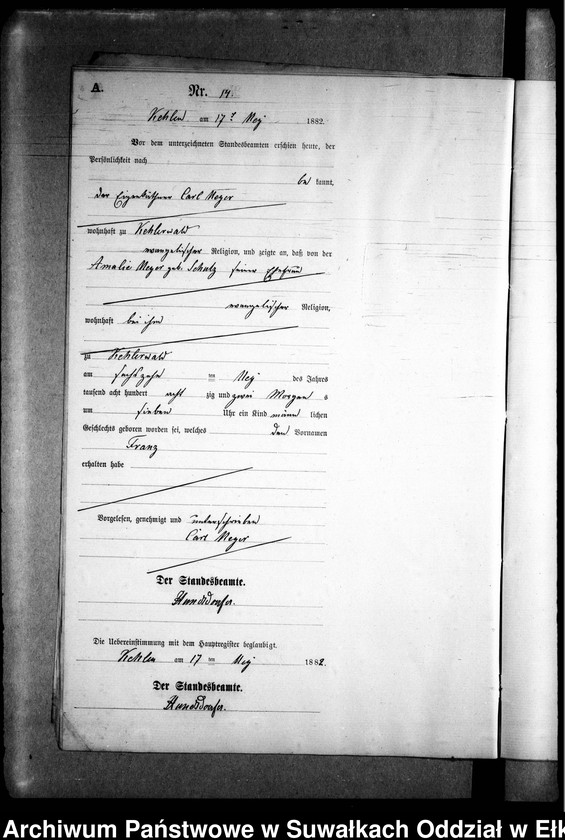 A.
Nr. 14.
Kehlen am 17ten May 1882.
Vor dem unterzeichneten Standesbeamten erschien heute, der
Persönlichkeit nach
be kannt,
der Eigenkäthner Carl Meyer
wohnhaft zu Kehlerwald
evangelischer Religion, und zeigte an, daß von der
Amalie Meyer geb. Schulz seiner Ehefrau
evangelischer Religion,
wohnhaft bei ihm
zu Kehlerwald
am sechszehn ten May des Jahres
tausend acht hundert acht zig und zwei Morgens
um sieben Uhr ein Kind männ lichen
Geschlechts geboren worden sei, welches den Vornamen
Franz
erhalten habe
Vorgelesen, genehmigt und unterschrieben
Carl Meyer
Der Standesbeamte.
Die Uebereinstimmung mit dem Hauptregister beglaubigt.
Kehlen am 17 ten May 1882.
Der Standesbeamte.
Archiwum Państwowe w Suwałkach Oddział w Ełk